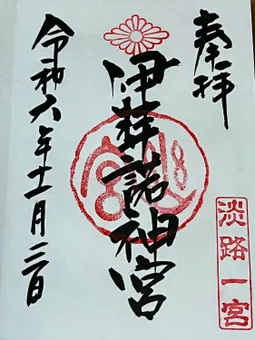 奉拝
伊弉諾神宮
令和六年十一月二日
淡路一宮